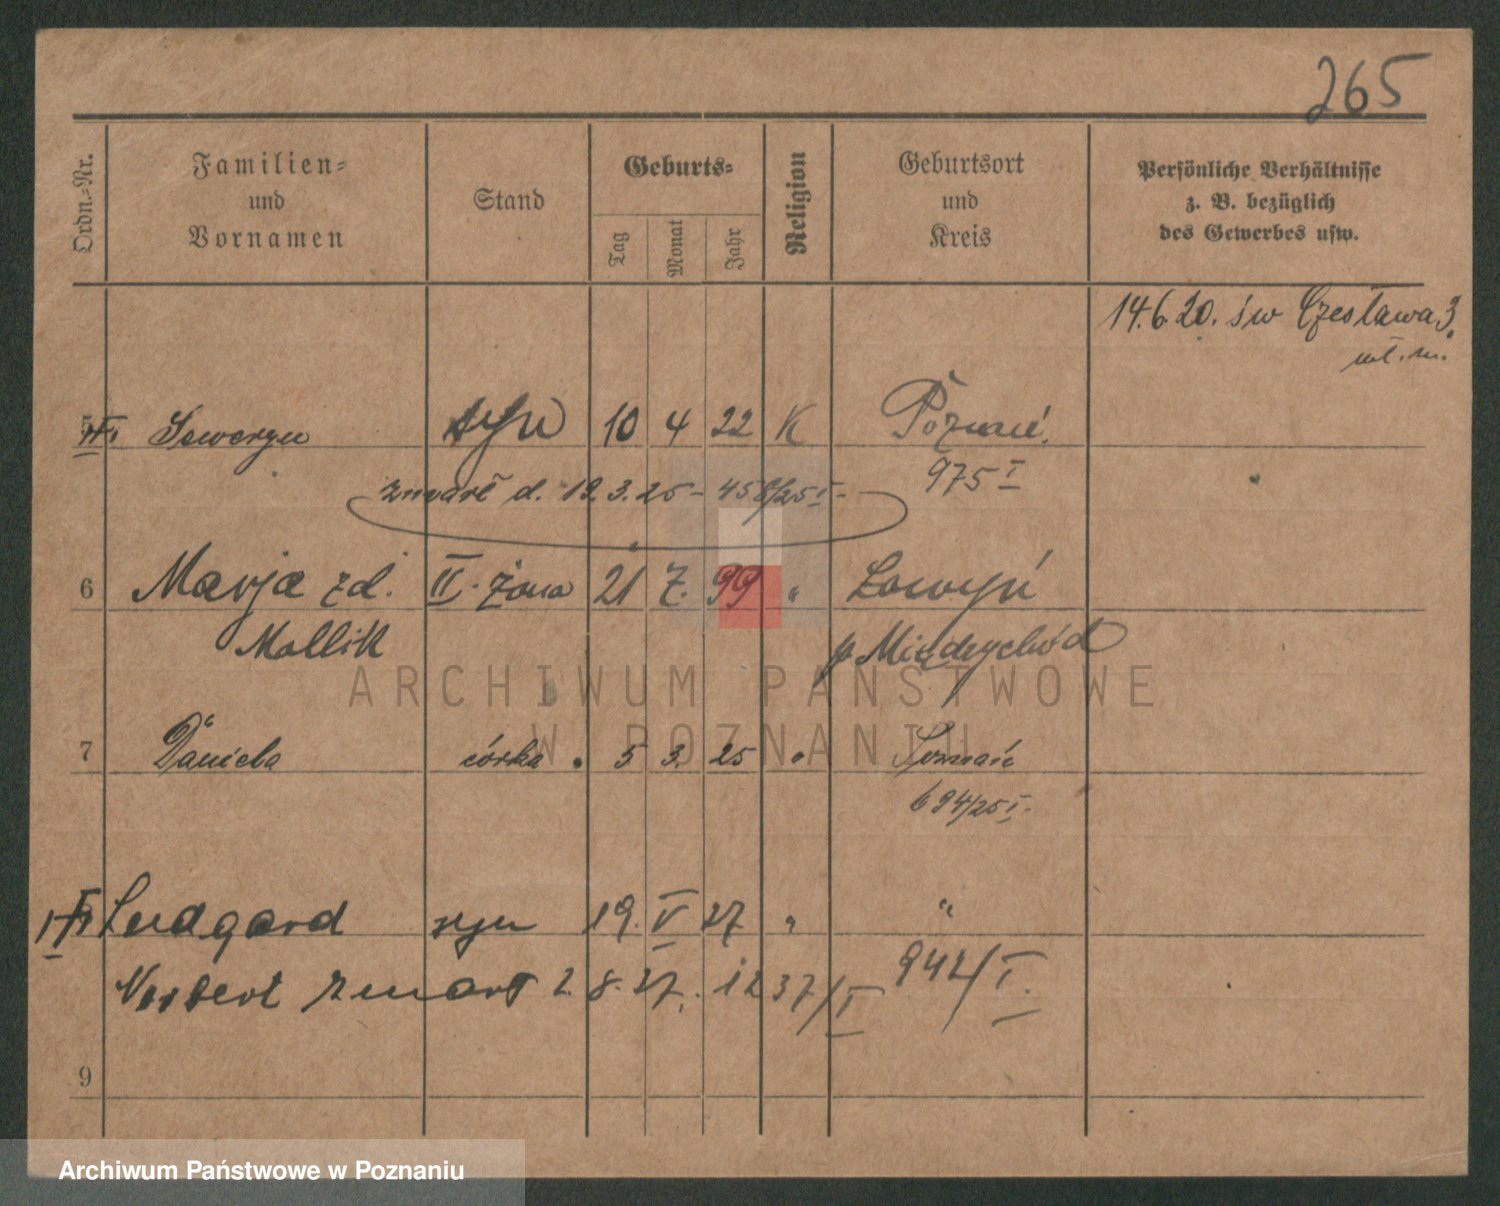 265
Ordn.-Nr.
Familien-
und
Vornamen
Stand
Geburts-
Tag
Monat
Jahr
Religion
Geburtsort
und
Kreis
Persönliche Verhältnisse
z. B. bezüglich
des Gewerbes usw.
14.6.20. św Czesława 3.
5 Seweryn syn 10 4 22 K Poznań.
zmarł d. 19.3.25 - 458/25 I - 975 I
6 Marja zd. II. żona 21 7. 99 " Lowyń
Mollik p Międzychód
ARCHIWUM PAŃSTWOWE
W POZNANIU
7 Daniela córka 5 3. 25 " Poznań
694/25 I.
Ludgard syn 19. V 27 " "
Norbert zmarł 2. 8. 27. 1237/I 942/I.
9
Archiwum Państwowe w Poznaniu